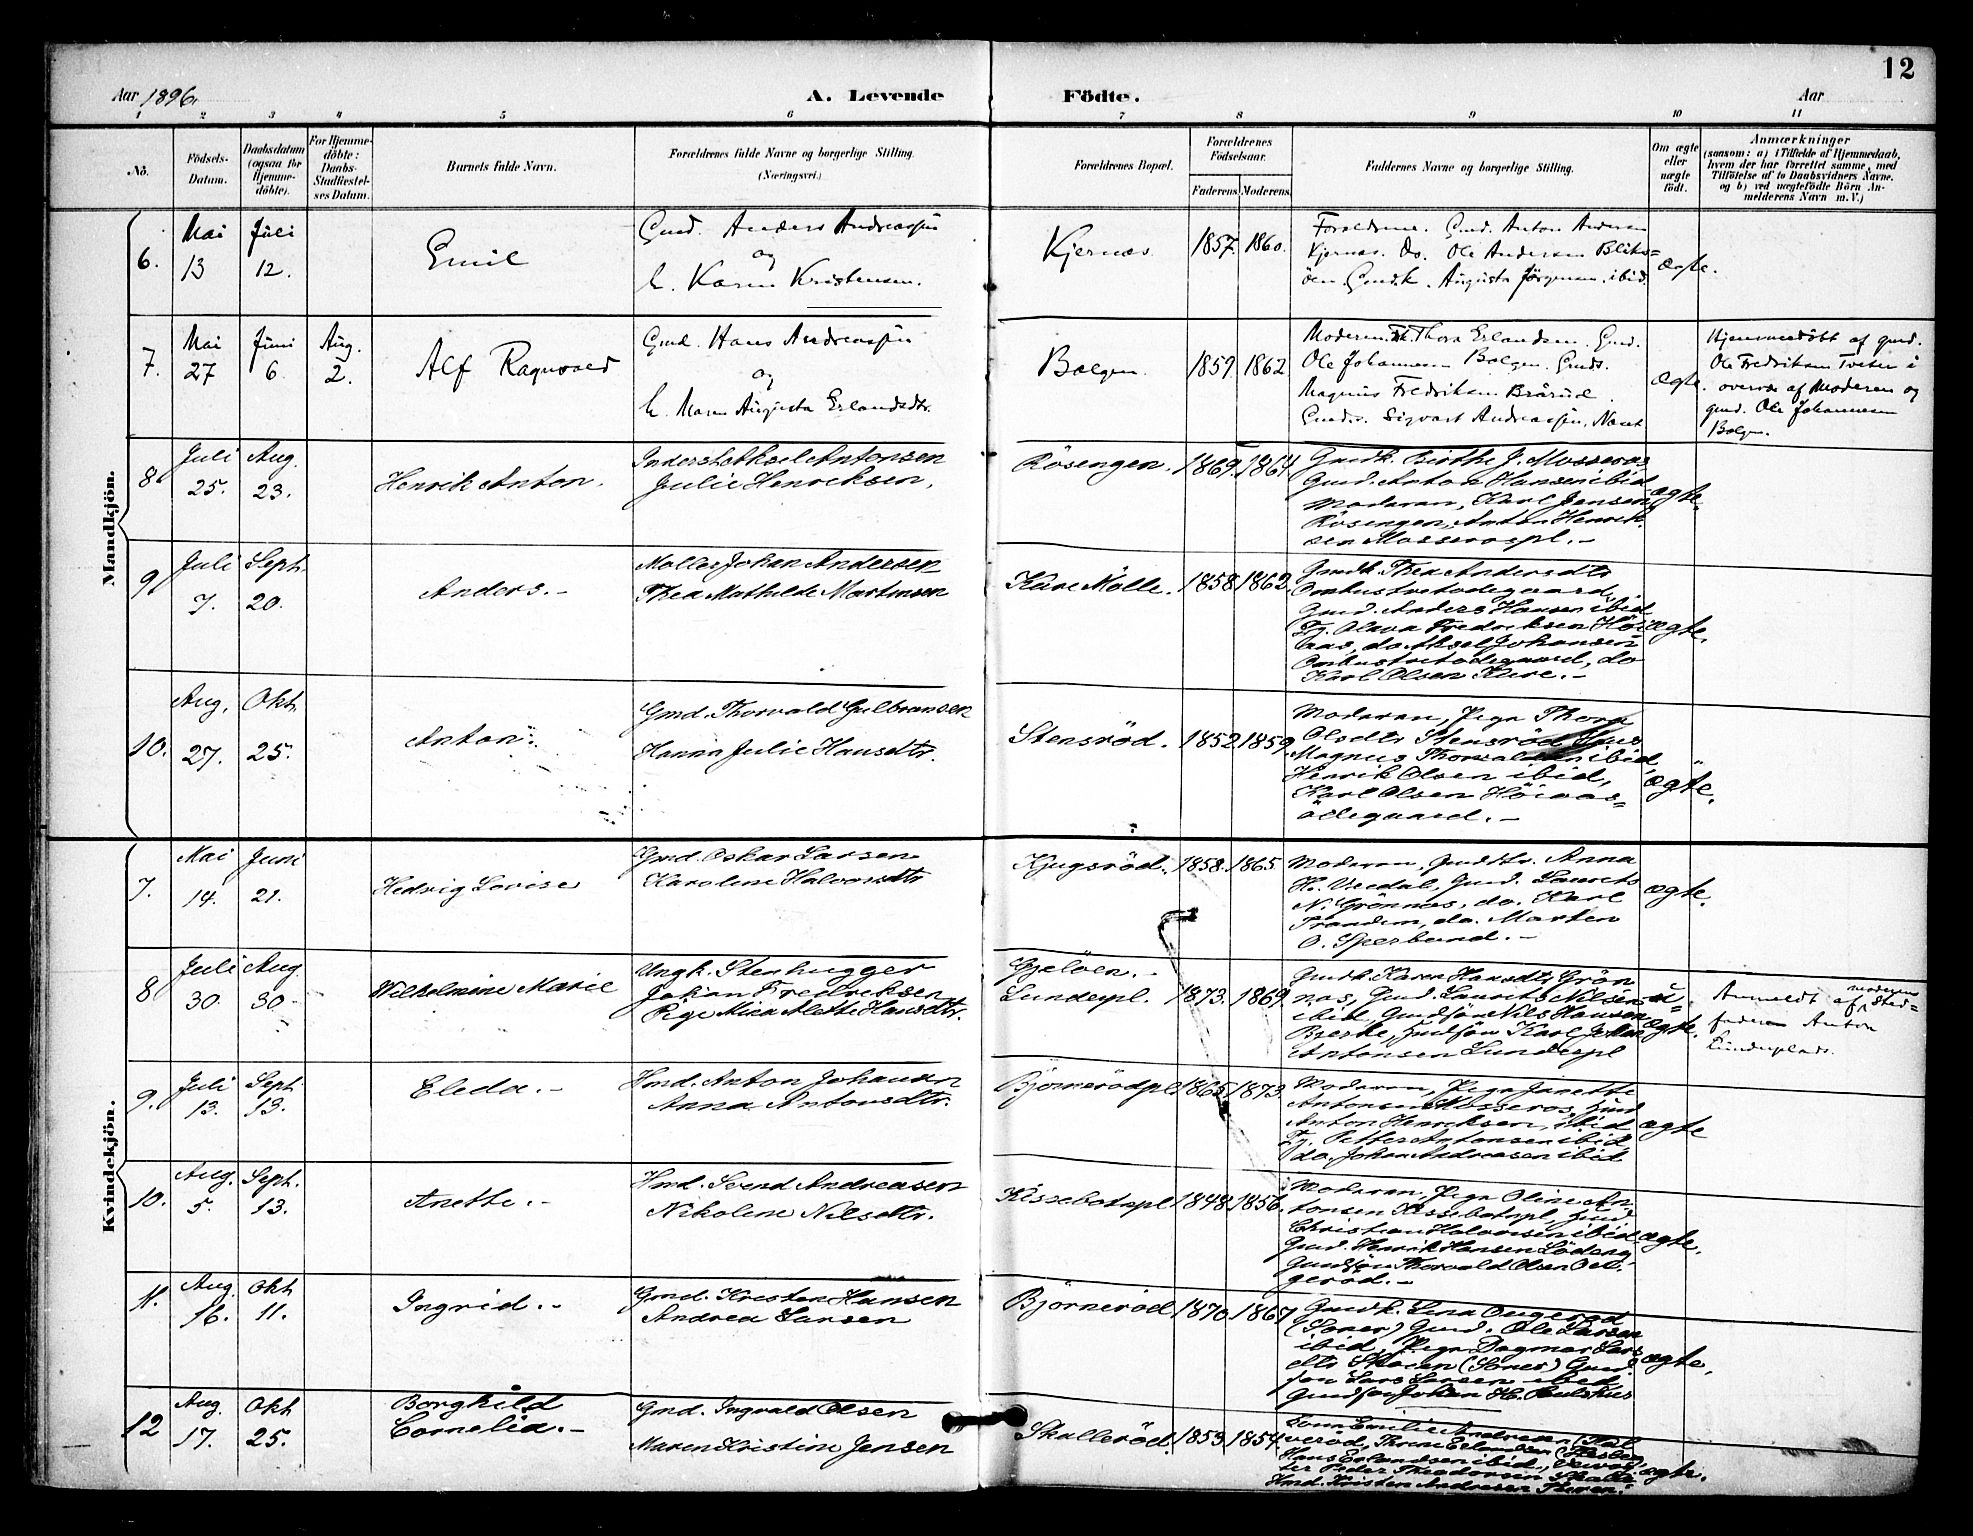 12
Aar 1896.
A. Levende Födte.
Aar
1 2 3 4 5 6 7 8 9 10 11
No.
Födsels-
Datum.
Daabsdatum
(ogsaa for
Hjemme-
döbte).
For Hjemme-
döbte:
Daabs-
Stadfæstel-
ses Datum.
Barnets fulde Navn.
Forældrenes fulde Navne og borgerlige Stilling.
(Næringsvei.)
Forældrenes Bopæl.
Forældrenes
Födselsaar.
Faderens. Moderens.
Faddernes Navne og borgerlige Stilling.
Om ægte
eller
uægte
födt.
Anmærkninger
(saasom: a) i Tilfælde af Hjemmedaab,
hvem der har forrettet samme, med
Tilföielse af to Daabsvidners Navne,
og b) ved uægtefödte Börn An-
melderens Navn m. V.)
Mandkjön.
6.
Mai
13
Juli
12.
Emil
Gmd. Anders Andreassen
og
h. Karen Kristensen.
Kjernæs
1857. 1860.
Forældrene. Gmd. Anton Andersen
Kjernæs. Do. Ole Andersen
Gmdk. Augusta Jörgensen ibid.
ægte.
7.
Mai
27
Juni
6
Aug.
2.
Alf Ragnvald
Gmd. Hans Andreassen
og
h. Maren Augusta Erlandsdtr.
Bolgen
1859. 1862
Moderen. Thora Erlandsen. Gmd.
Ole Johannesen Bolgen. Gmds.
Magnus Fredriksen Brörud.
Gmds. Sigvart Andreassen, Næset
ægte.
Hjemmedöbt af gmd.
Ole Fredriksen Tveter i
overvær af Moderen og
gmd. Ole Johannesen
Bolgen.
8
Juli
25.
Aug.
23.
Henrik Anton.
Inderst Aksel Antonsen
Julie Henriksen,
Rösengen.
1869. 1864
Gmdk. Birthe J. Mosseros
Gmd. Anton Hansen ibid
Moderen, Karl Jensen
Rösengen, Anton Henrik-
sen Mosserospl. -
ægte.
9.
Juli
7.
Sept.
20.
Anders. -
Möller Johan Andersen
Thea Mathilde Martinsen
Kure Mölle.
1858. 1862.
Gmdk. Thea Andersdtr
Ombustvetodegaard,
Gmd. Anders Hansen ibid
Tj. Olava Fredriksen Höi-
aas, do Aksel Johansen
Ombustvetodegaard, do
Karl Olsen Kure. -
ægte.
10.
Aug.
27.
Okt.
25.
Anton. -
Gmd. Thorvald Gulbransen
Hanna Julie Hansdtr.
Stensröd.
1852. 1859.
Moderen, Pige Thora
Olsdtr Stensröd
Magnus Thorvaldsen ibid,
Henrik Olsen ibid,
Karl Olsen Höiaas-
ödegaard. -
ægte.
Kvindekjön.
7.
Mai
14.
Juni
21.
Hedvig Lovise
Gmd. Oskar Larsen
Karoline Halvorsdtr
Kjugsröd.
1858. 1865.
Moderen, Anna
H. Veedal, Gmd. Laurits
N. Grönnæs, do. Karl
Trandem, do. Marten
O. Sperbund. -
ægte.
8
Juli
30.
Aug.
30.
Wilhelmine Marie
Ungk. Stenhugger
Johan Fredriksen
Pige Mina Alette Hansdtr.
Gjelöen. -
Lundepl.
1873. 1869.
Gmdk. Karen Hansdtr Grön
næs, Gmd. Laurits Nilsen
ibid, Gmdsön Nils Hansen
Bjerke, Gmdsön Karl Johan
Antonsen Lundepl
u-
ægte.
Anmeldt af moderens Sted-
fader Anton
Lundeplads.
9.
Juli
13.
Sept.
13.
Eleda. -
Hmd. Anton Johansen
Anna Antonsdtr.
Björnerödpl.
1865. 1873.
Moderen, Pige Janette
Antonsen Mosseros, Gmd
Anton Henriksen, ibid
Tj. Petter Antonsen ibid
do. Johan Andreasen ibid
ægte
10.
Aug.
5.
Sept.
13.
Anette. -
Hmd. Svend Andreasen
Nikoline Nilsdtr.
Kissebotnpl
1848. 1856.
Moderen, Pige Oline An-
tonsen Kissebotnpl, Gmd
Christian Halvorsen ibid
Gmd. Henrik Hansen
Gmdsön Thorvald Olsen Oel-
geröd. -
ægte.
11.
Aug.
16.
Okt
11.
Ingrid. -
Gmd. Kristen Hansen
Andrea Larsen
Björneröd
1870. 1867
Gmdk. Lina Ougeröd
(Soner) Gmd. Ole Larsen
ibid, Pige Dagmar Lars
dtr Skoien (Soner) Gmd
sön Lars Larsen ibid
Gmdsön Johan H. Paulshus
ægte.
12
Aug.
17.
Okt
25.
Borghild
Cornelia. -
Gmd. Ingvald Olsen
Maren Kristine Jensen
Skalleröd
1853. 1854.
Emilie Andresen
veröd, Thrine Erlandsen
Hans Erlandsen ibid,
Peder Theodorsen
Hmd. Kristen Andresen
ægte.